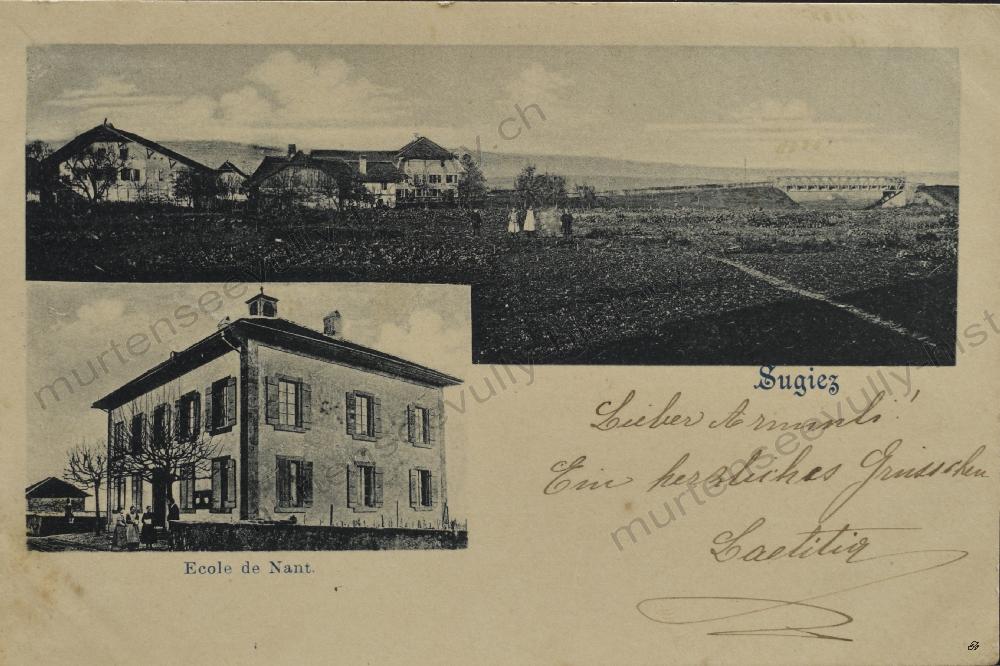 Sugiez
Lieber Armand!
Ein herzliches Grüsschen
Laetitia
Ecole de Nant.
murtenseevully.ch